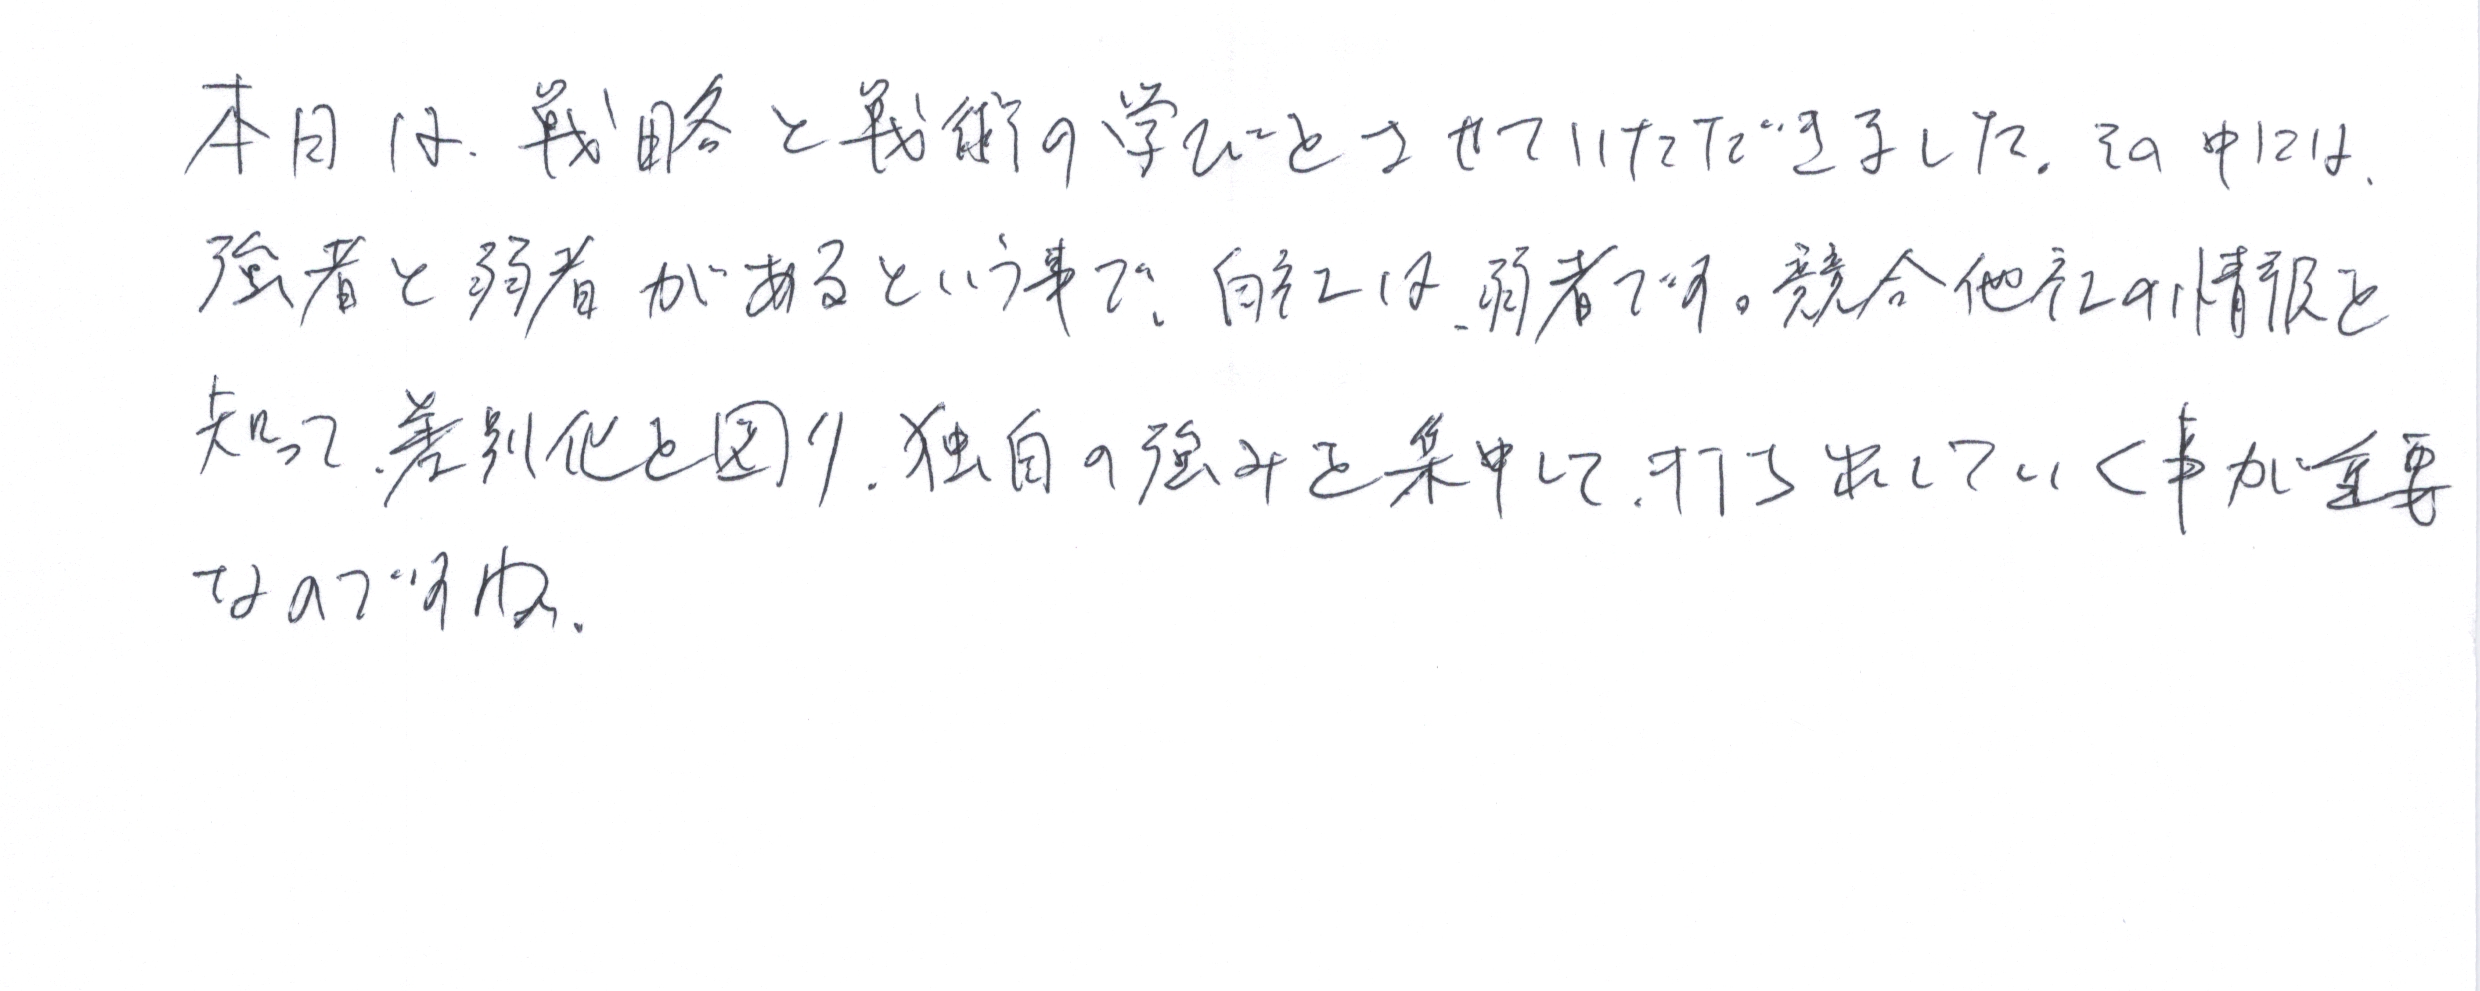 本日は、戦略と戦術の学びをさせていただきました。その中には、
強者と弱者があるという事で、自社は、弱者です。競合他社の情報を
知って、差別化を図り、独自の強みを集中して、打ち出していく事が重要
なのですね。